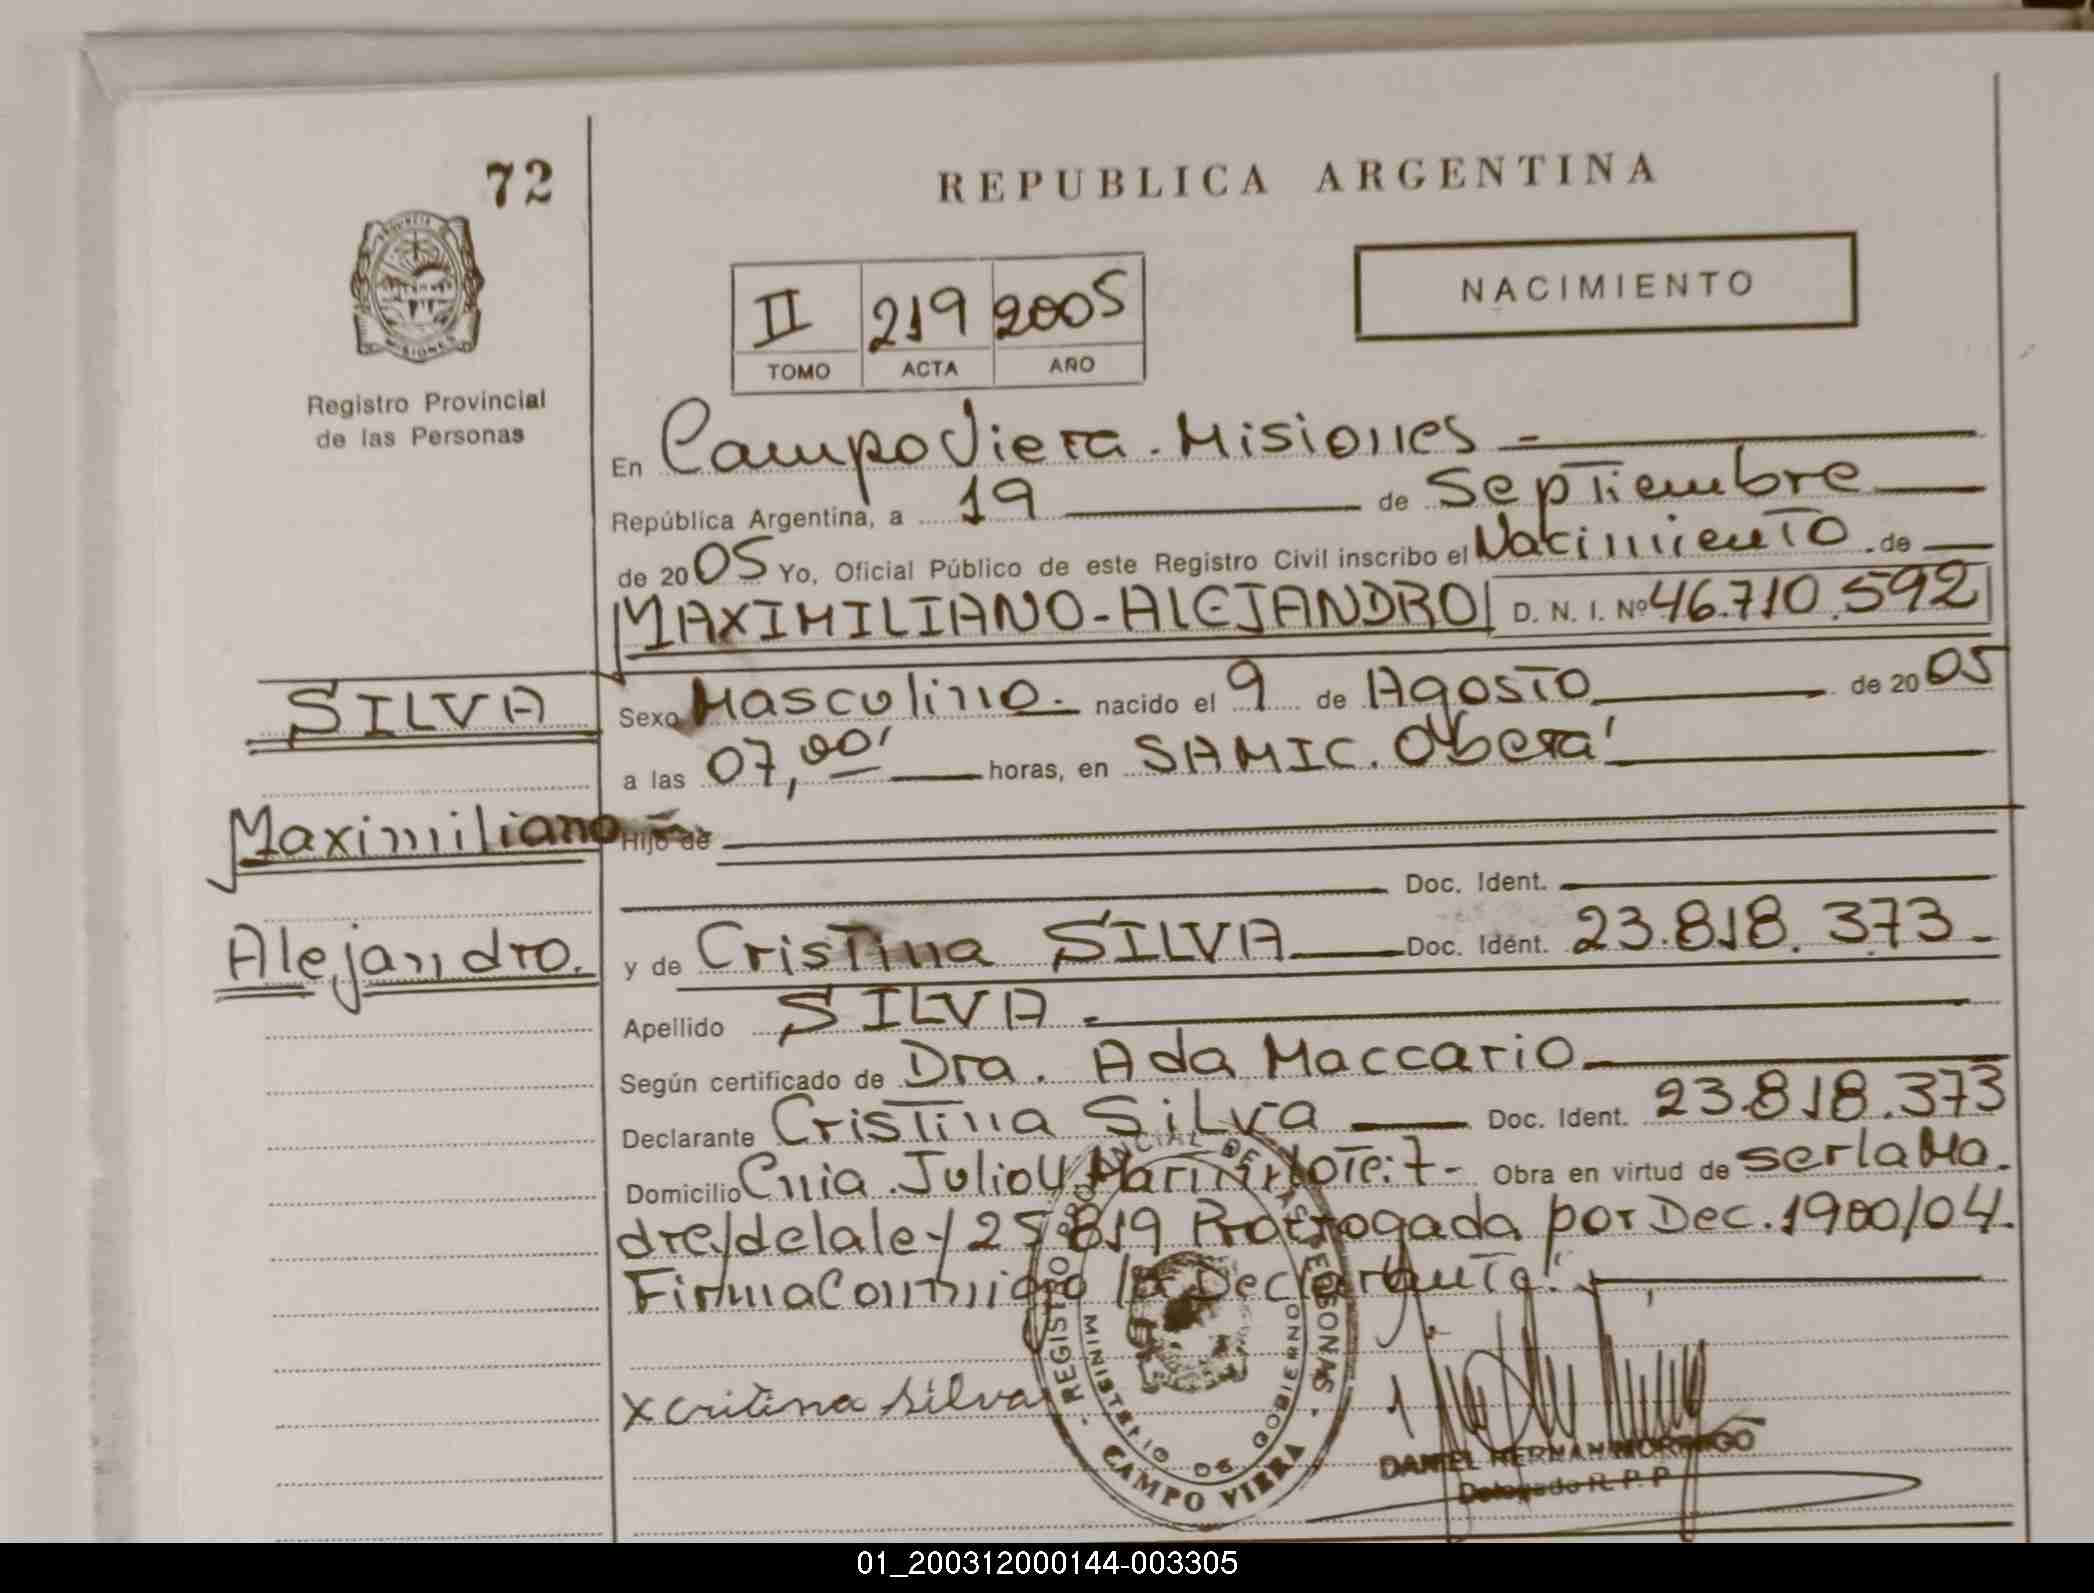 72
REPUBLICA ARGENTINA
NACIMIENTO
II 219 2005
TOMO ACTA AÑO
Registro Provincial
de las Personas
En Campo Viera. Misiones -
República Argentina, a 19 de Septiembre
de 2005 Yo, Oficial Público de este Registro Civil inscribo el Nacimiento de
MAXIMILIANO-ALEJANDRO D. N. I. Nº 46.710.592
SILVA
Maximiliano
Alejandro.
Sexo Masculino. nacido el 9 de Agosto de 2005
a las 07,00' horas, en SAMIC. Oberá
Hijo de
Doc. Ident.
y de Cristina SILVA Doc. Ident. 23.818.373-
Apellido SILVA.
Según certificado de Dra. Ada Maccario
Declarante Cristina Silva Doc. Ident. 23.818.373
Domicilio Julio U Lote:7- Obra en virtud de ser la Ma
dre/de la ley 25819 Prorrogada por Dec. 1900/04.
Firma Conmigo la Declarante.
x critina silva
REGISTRO PROVINCIAL DE LAS PERSONAS
MINISTERIO DE GOBIERNO
CAMPO VIERA
DANIEL HERNAN
Delegado R. P. P
01_200312000144-003305